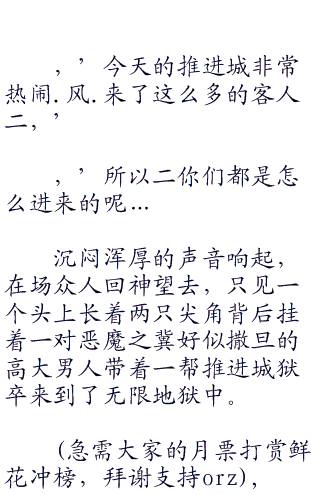 ，’今天的推进城非常
热闹.风.来了这么多的客人
二，’
，’所以二你们都是怎
么进来的呢...
沉闷浑厚的声音响起，
在场众人回神望去，只见一
个头上长着两只尖角背后挂
着一对恶魔之冀好似撒旦的
高大男人带着一帮推进城狱
卒来到了无限地狱中。
(急需大家的月票打赏鲜
花冲榜，拜谢支持orz)，